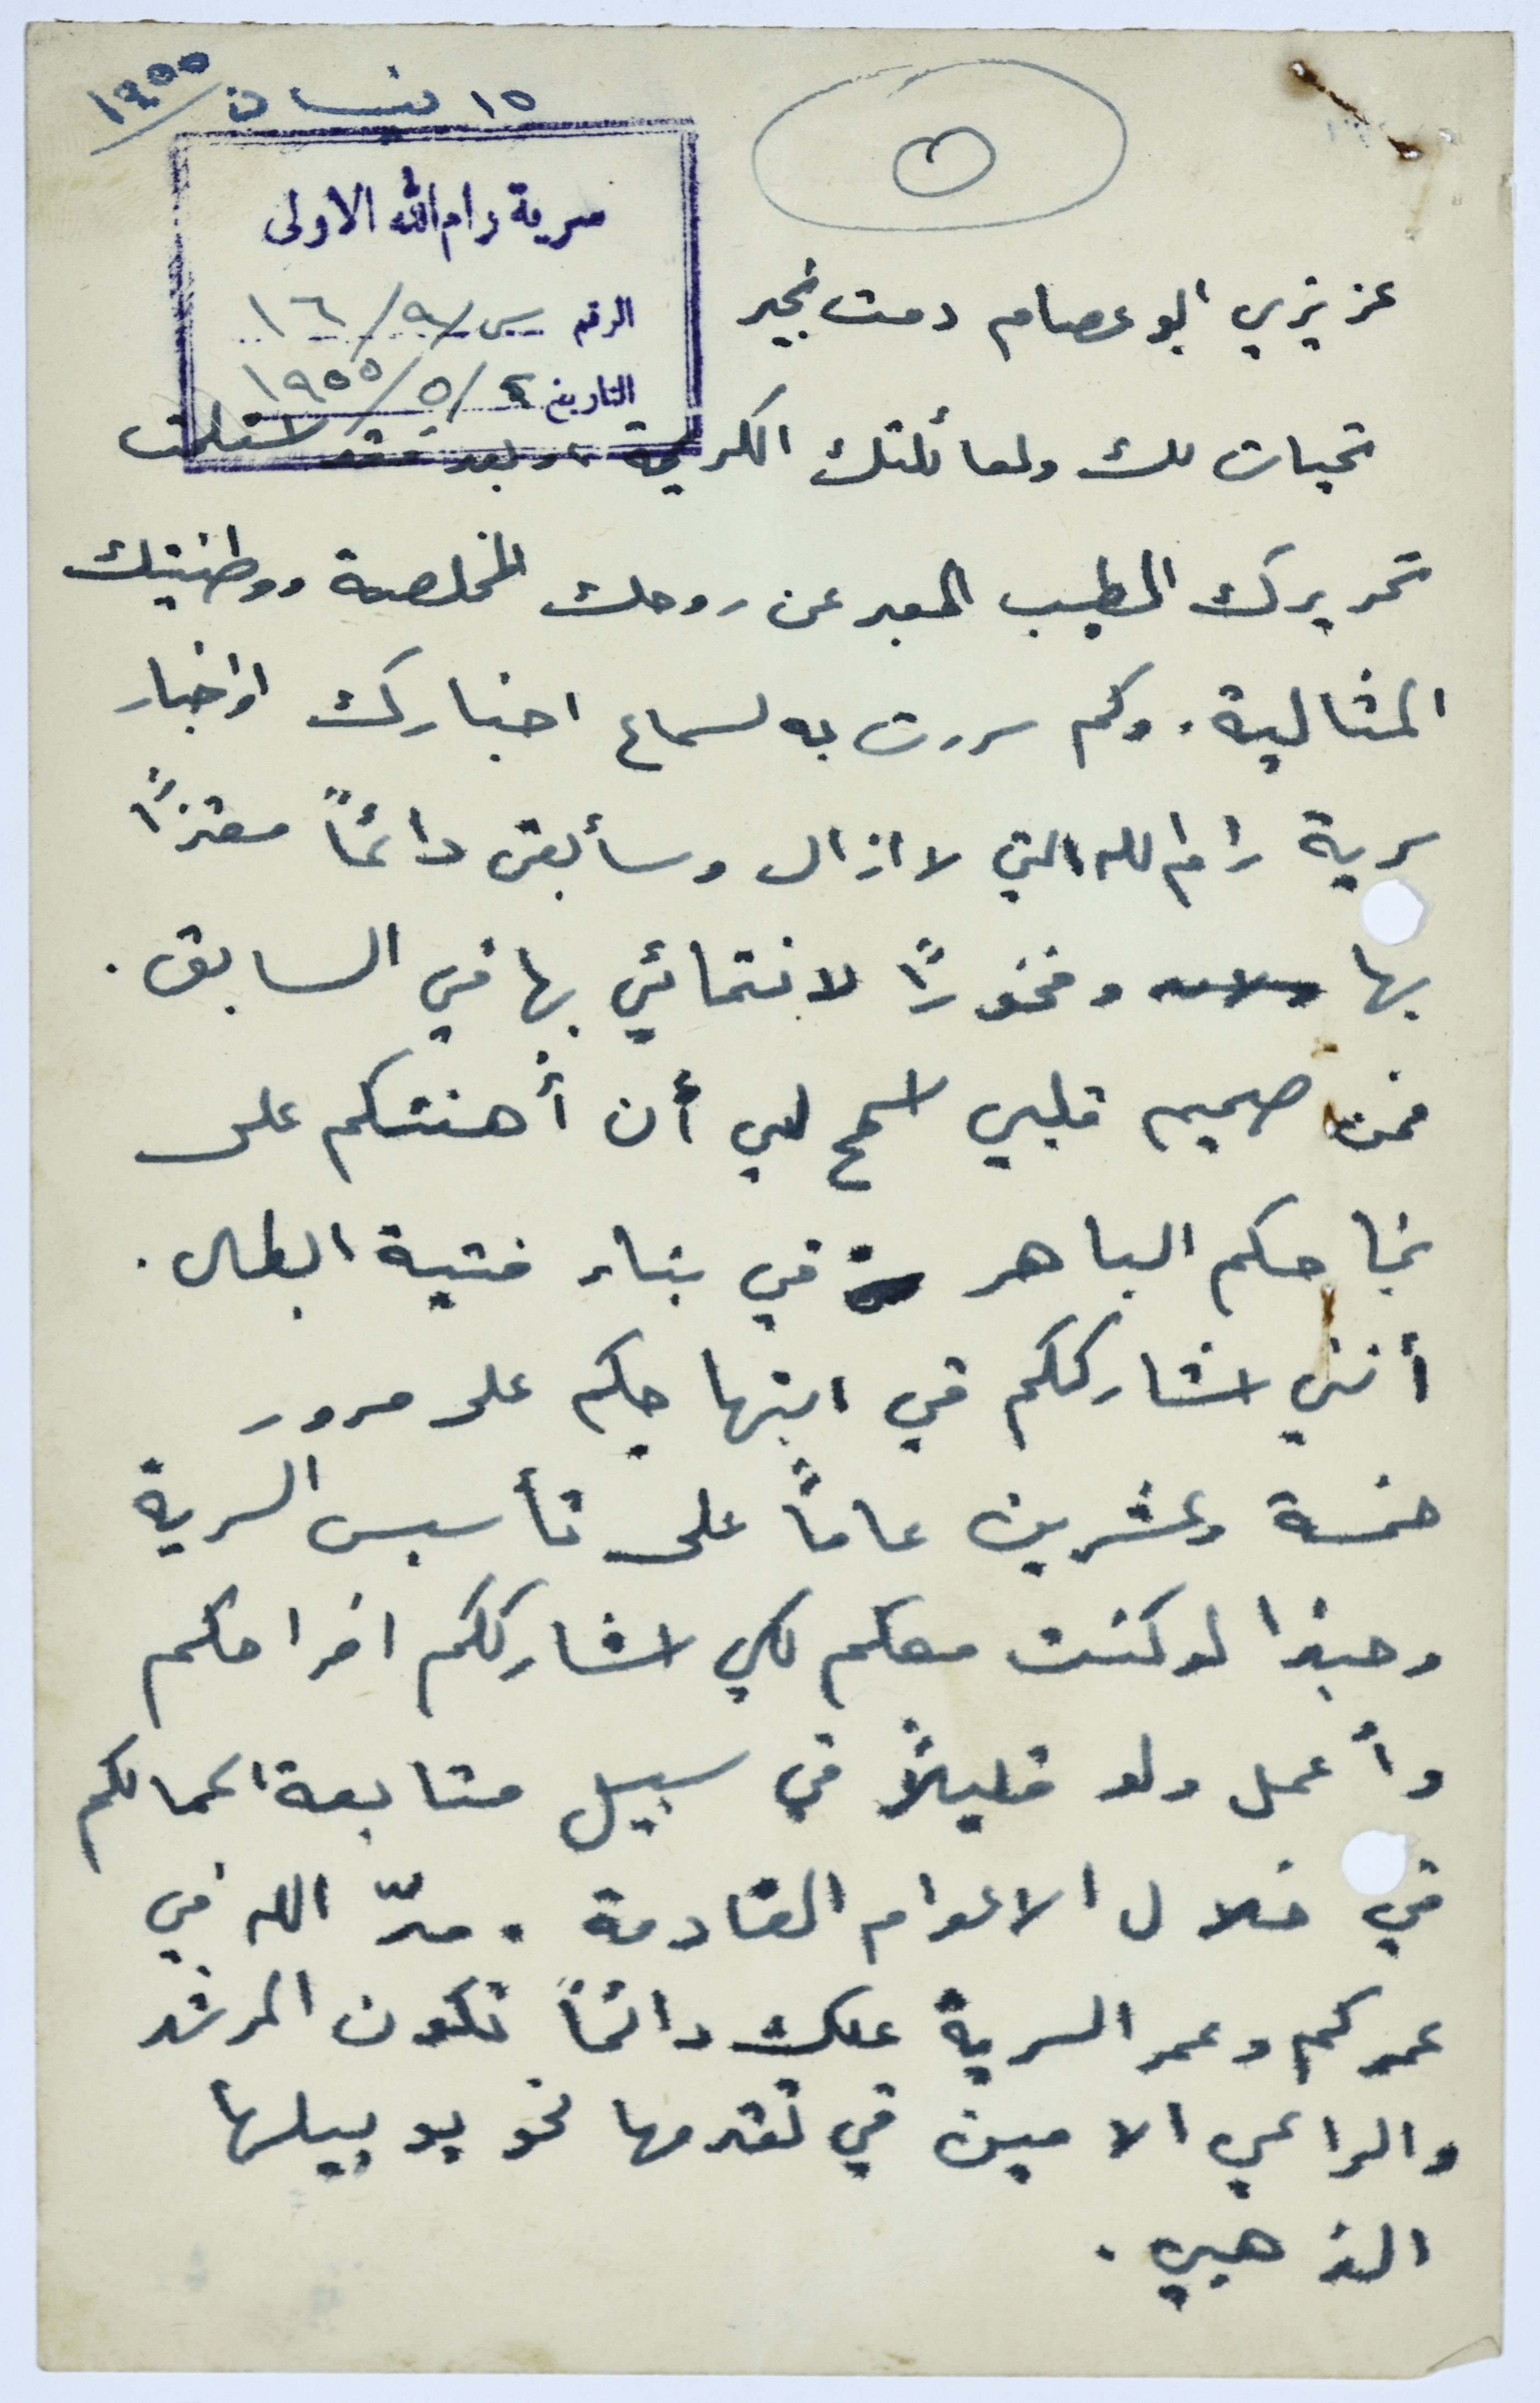 ١٥ نيسان ١٩٥٥
٥
سرية رام الله الاولى
الرقم س/٩/١٦
التاريخ ٤/٥/١٩٥٥
عزيزي ابو عصام دمت بخير
تحيات لك ولعائلتك الكريمة، وبعد فقد استلمت
تحريرك الطيب المعبر عن روحك المخلصة ووطنيتك
المثالية. وكم سررت به لسماع اخبارك واخبار
سرية رام الله التي لا ازال وسأبقى دائماً معتزاً
بها وفخوراً لانتمائي بها في السابق.
فمن صميم قلبي اسمح لي أن أهنئكم على
نجاحكم الباهر في بناء فتية ابطال.
أنني اشارككم في ابتهاجكم على مرور
خمسة وعشرين عاماً على تأسيس السرية
وحبذا لو كنت معكم لكي اشارككم افراحكم
وأعمل ولو قليلاً في سبيل متابعة اعمالكم
في خلال الاعوام القادمة. مدّ الله في
عمركم وعمر السرية علك دائماً تكون المرشد
والراعي الامين في تقدمها نحو يوبيلها
الذهبي.